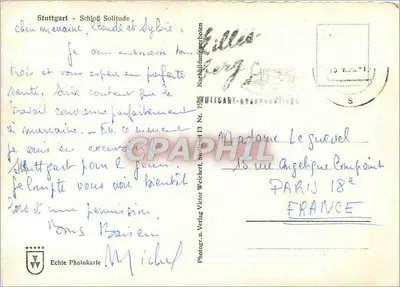 Stuttgart - Schloß Solitude
chère marraine, Claude et Sylvie.
Je vous embrasse tous
trois et vous espère en parfaite
santé. Suis content que ce
travail convienne parfaitement
à marraine. - En ce moment
je suis en excursion
Stuttgart pour 2 jours.
Je compte vous voir bientôt
lors d'une permission.
Bons Baisers
Michel
Echte Photokarte
Photogr. u. Verlag Victor Weichert, Stuttgart 13 Nr.
Nachbildung verboten
Killes
berg
S
Madame Le Guevel
18 rue Angélique Compoint
PARIS 18e
FRANCE
CPAPHIL